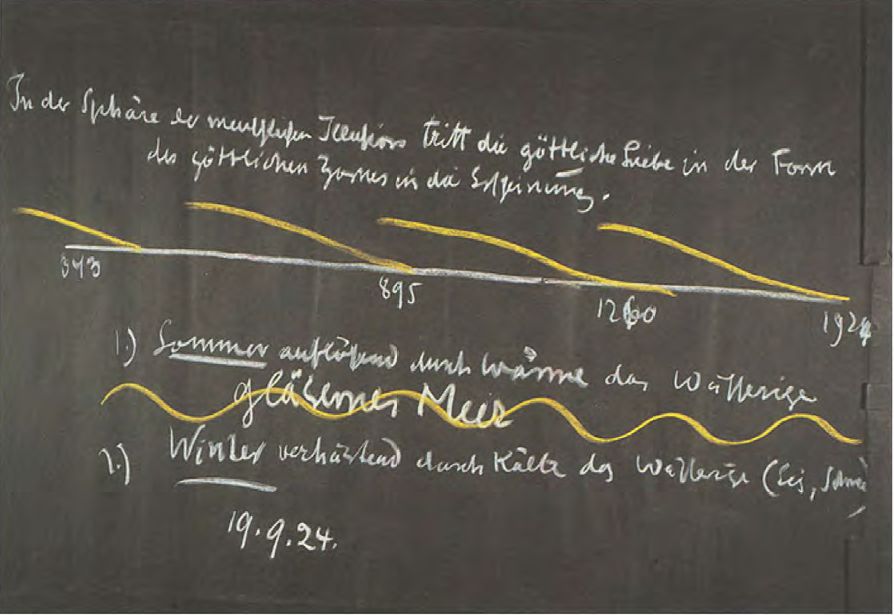 In der Sphäre der menschlichen Illusion tritt die göttliche Liebe in der Form
des göttlichen Zornes in die Erscheinung.
343
895
1260
1924
1.) Sommer auflösend durch Wärme das Wässerige
gläsernes Meer
2.) Winter verhärtend durch Kälte das Wässerige (Eis, Schnee)
19.9.24.